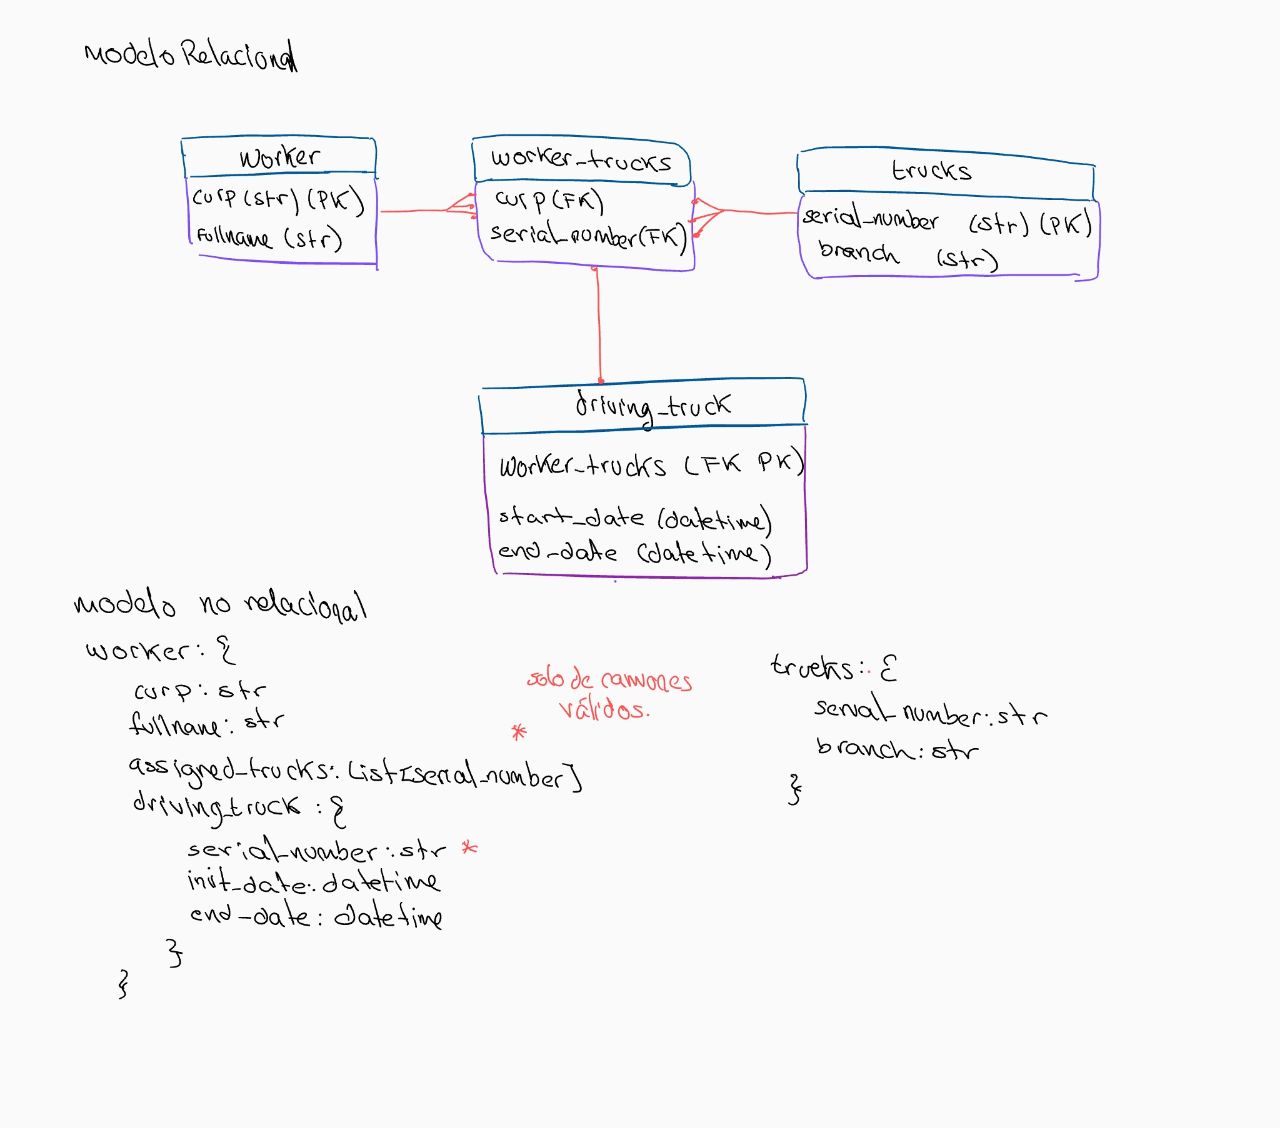 modelo Relacional
worker
curp (str) (PK)
fullname (str)
worker_trucks
curp (FK)
serial_number (FK)
trucks
serial_number (str) (PK)
branch (str)
driving_truck
worker_trucks (FK PK)
start_date (datetime)
end_date (datetime)
modelo no relacional
worker: {
curp: str
fullname: str
assigned_trucks: List[serial_number] *
driving_truck: {
serial_number: str *
init_date: datetime
end_date: datetime
}
}
solo de camiones
válidos.
trucks: {
serial_number: str
branch: str
}